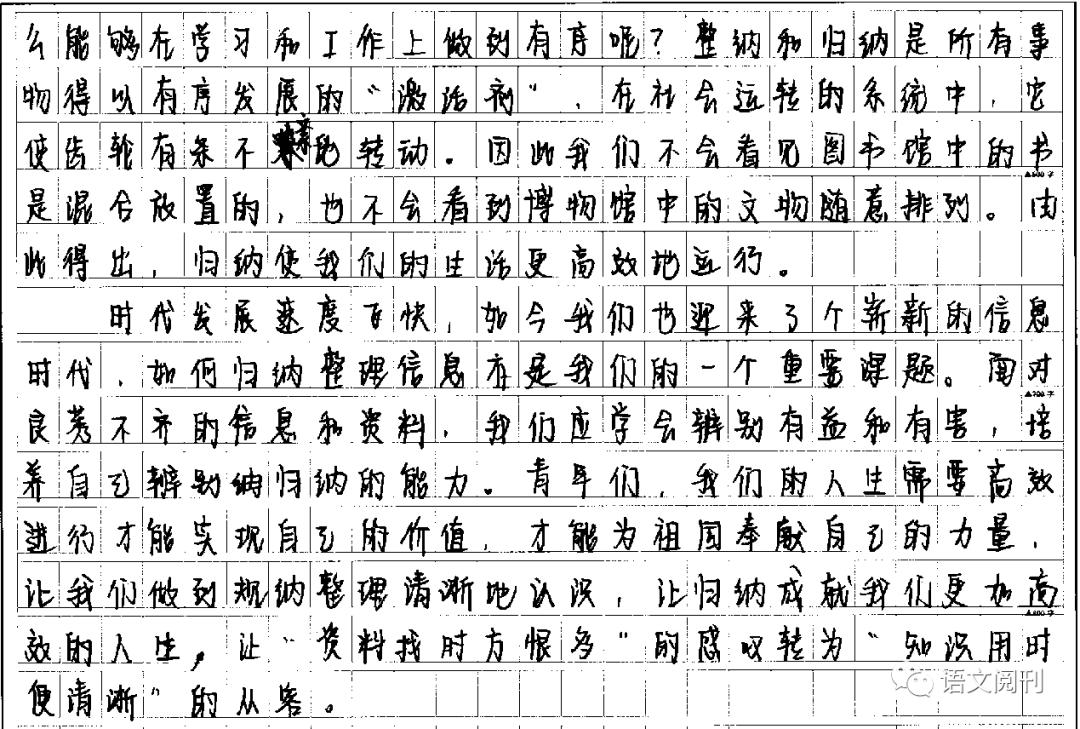 么能够在学习和工作上做到有序呢？整纳和归纳是所有事
物得以有序发展的“激活剂”，在社会运转的系统中，它
使齿轮有条不紊地转动。因此我们不会看见图书馆中的书
▲600字
是混合放置的，也不会看到博物馆中的文物随意排列。由
此得出，归纳使我们的生活更高效地运行。
时代发展速度飞快，如今我们也迎来了个崭新的信息
时代，如何归纳整理信息存是我们的一个重要课题。面对
▲700字
良莠不齐的信息和资料，我们应学会辨别有益和有害，培
养自己辨别纳归纳的能力。青年们，我们的人生需要高效
进行才能实现自己的价值，才能为祖国奉献自己的力量，
让我们做到规纳整理清晰地认识，让归纳成就我们更加高
▲800字
效的人生，让“资料找时方恨多”的感叹转为“知识用时
便清晰”的从容。
语文阅刊